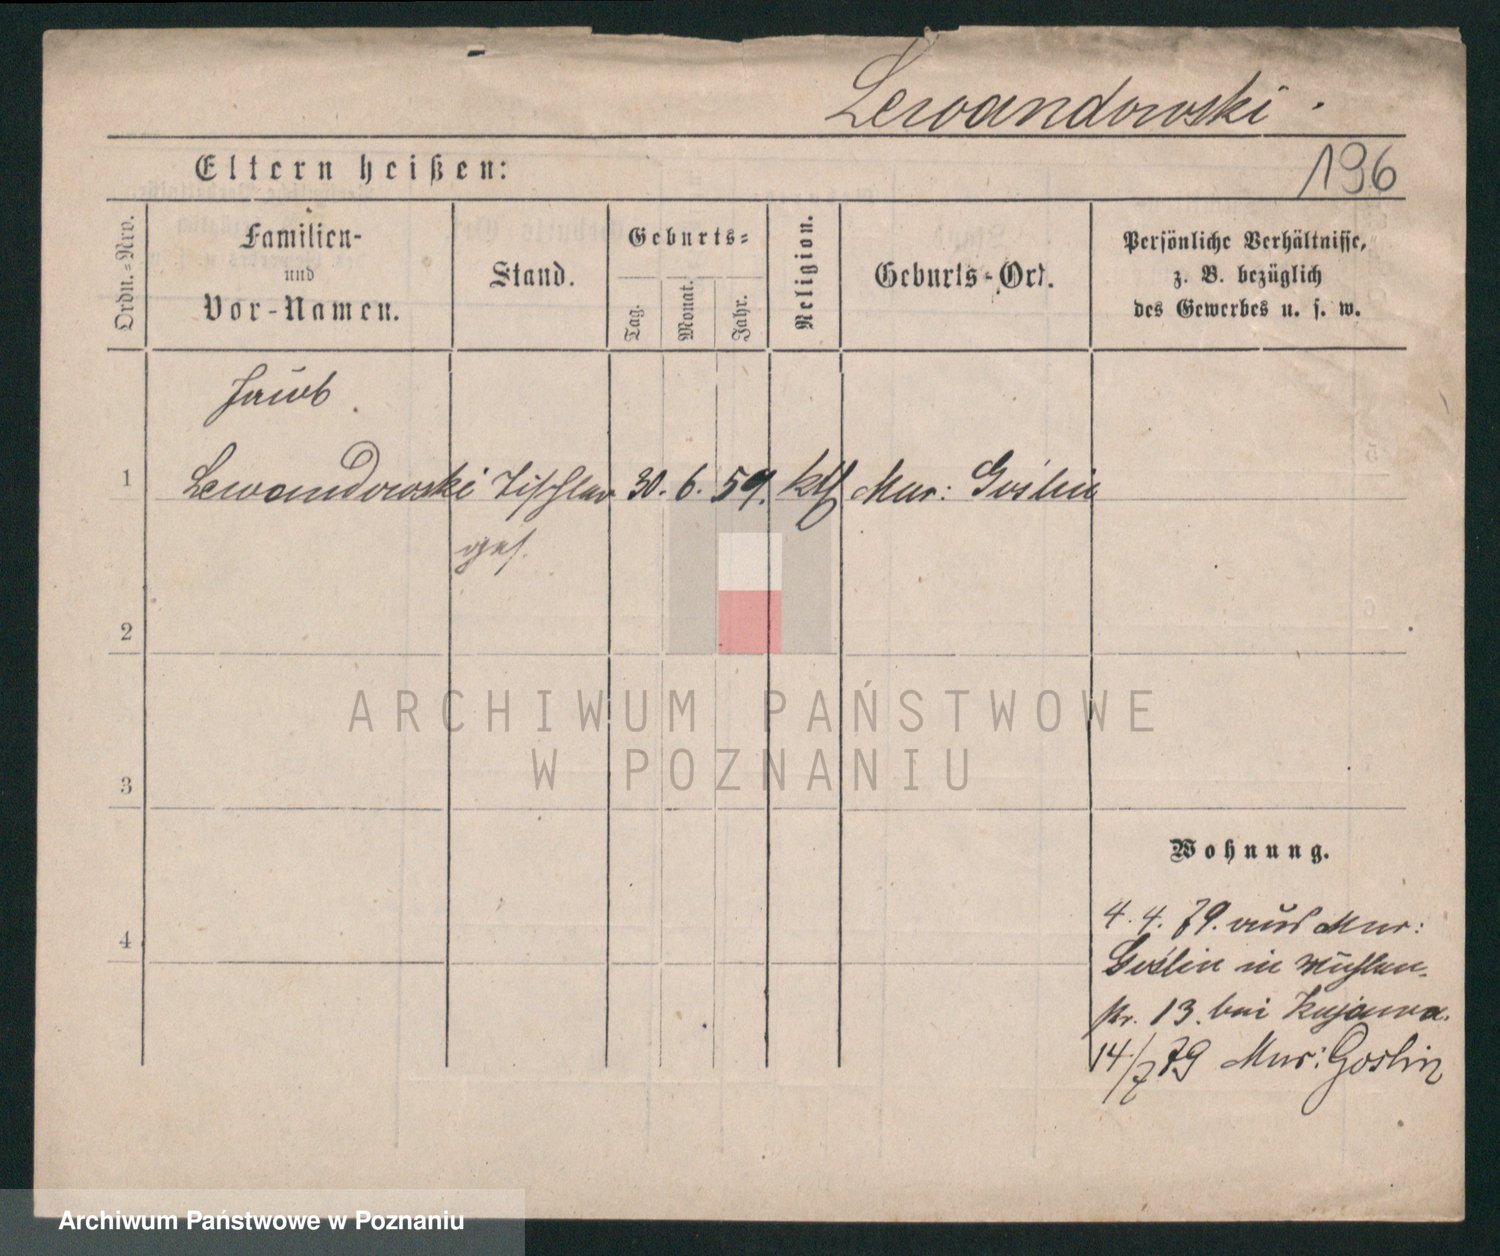 Lewandowski.
Eltern heißen:
196
Ordn.-Nro.
Familien-
und
Vor-Namen.
Stand.
Geburts-
Tag.
Monat.
Jahr.
Religion.
Geburts-Ort.
Persönliche Verhältnisse,
z. B. bezüglich
des Gewerbes u. s. w.
Jacob
1 Lewandowski Tischler 30. 6. 59. kth Mur: Goslin
ges.
2
ARCHIWUM PAŃSTWOWE
W POZNANIU
3
Wohnung.
4
4. 4. 79. aus Mur:
Goslin in Mühlen-
str. 13. bei Kujawa.
14/7 79 Mur: Goslin
Archiwum Państwowe w Poznaniu